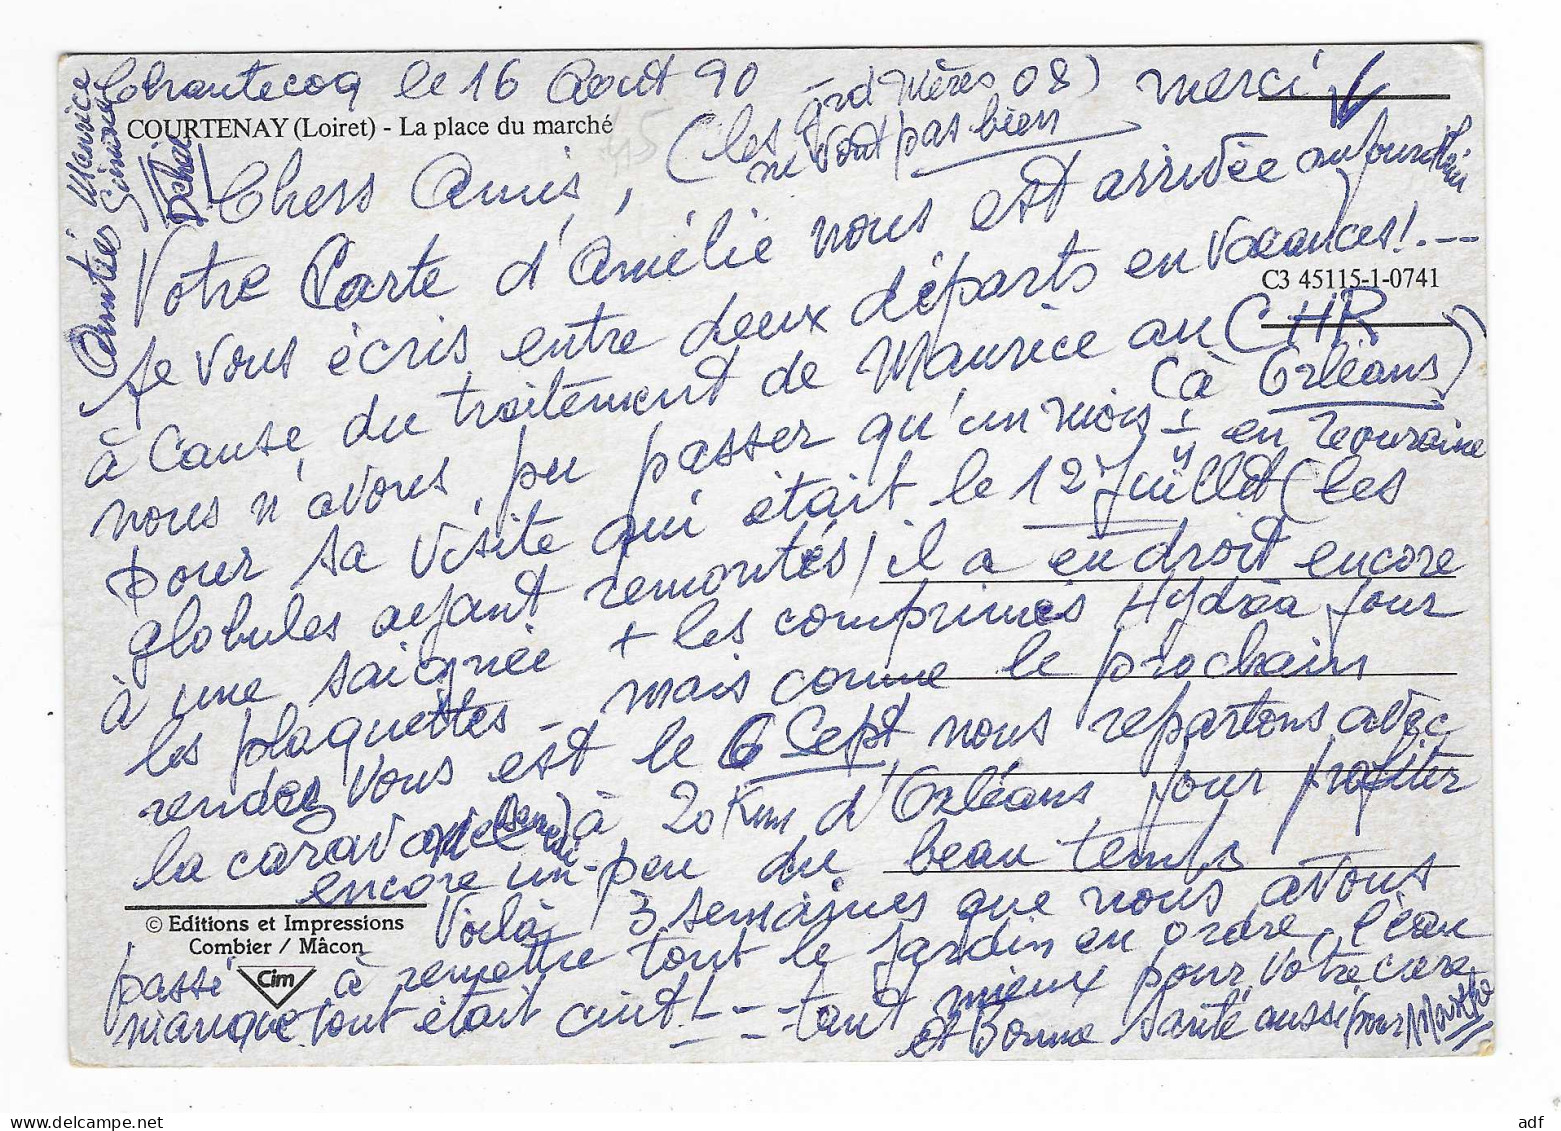 Chantecoq le 16 Août 90
(les grd Mères 08)
ne vont pas bien
merci
COURTENAY (Loiret) - La place du marché
Chers Amis,
Votre Carte d'Amélie nous est arrivée aujourd'hui
C3 45115-1-0741
Je vous écris entre deux départs en vacances! . --
à cause du traitement de Maurice au CHR
(à Orléans)
nous n'avons pu passer qu'un mois en Touraine
pour sa visite qui était le 12 Juillet (les
globules ayant remontés) il a eu droit encore
à une saignée + les comprimés Hydréa pour
les plaquettes - mais comme le prochain
rendez vous est le 6 Sept nous repartons avec
la caravane à 20 Km d'Orléans pour profiter
encore un peu du beau temps
Voilà 3 semaines que nous avons
passé à remettre tout le jardin en ordre, l'eau
manque tout était cuit! - - - tant mieux pour votre cure
et Bonne santé aussi pour
Amitiés Simone
Maurice
© Editions et Impressions
Combier / Mâcon
Cim
adf